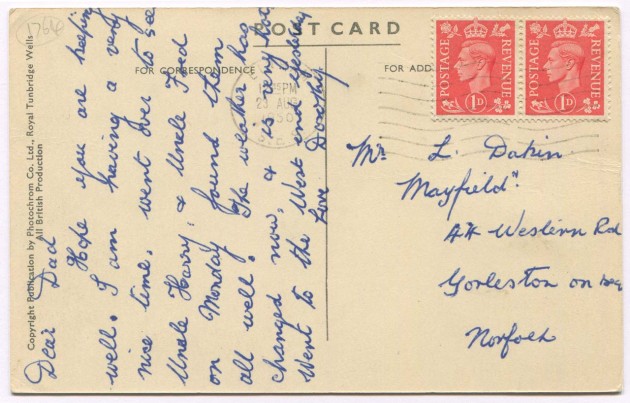 1766
POST CARD
FOR CORRESPONDENCE
FOR ADD
POSTAGE REVENUE
1D
POSTAGE REVENUE
1D
PM
23 AUG
Copyright Publication by Photochrom Co. Ltd., Royal Tunbridge Wells
All British Production
Dear Dad
Hope you are keeping
well. I am having a very
nice time. went over to see
Uncle Harry & Uncle Fred
on Monday found them
all well. The weather has
changed now, & is very hot
Went to the West end yesterday
Love Dorothy
Mr L. Dakin
Mayfield"
Western Rd
Gorleston on Sea
Norfolk